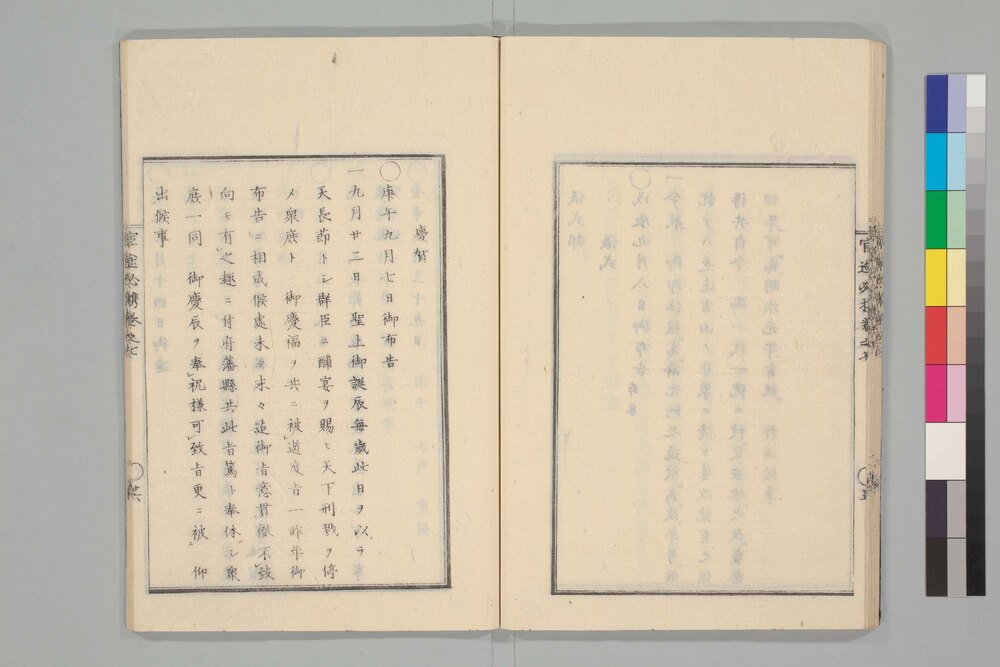 慶賀
○庚午九月七日御布告
一九月廿二日聖上御誕辰毎歳此日ヲ以テ
天長節トシ群臣ニ酺宴ヲ賜ヒ天下刑戮ヲ停
メ衆庶ト　御慶福ヲ共ニ被遊度旨一昨年御
布告ニ相成候處末々迠御旨意貫徹不致
向モ有之趣ニ付府藩縣共此旨篤ト奉体シ衆
庶一同　御慶辰ヲ奉祝様可致旨更ニ被　仰
出候事
官途必携巻之七